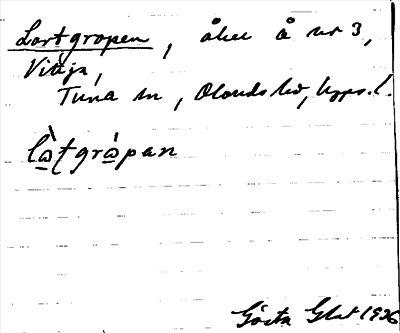 Lortgropen, åker å nr 3,
Viksja,
Tuna sn, Olands hd, Upps. l.
lὼtgrὼpan
Gösta Glst 1936